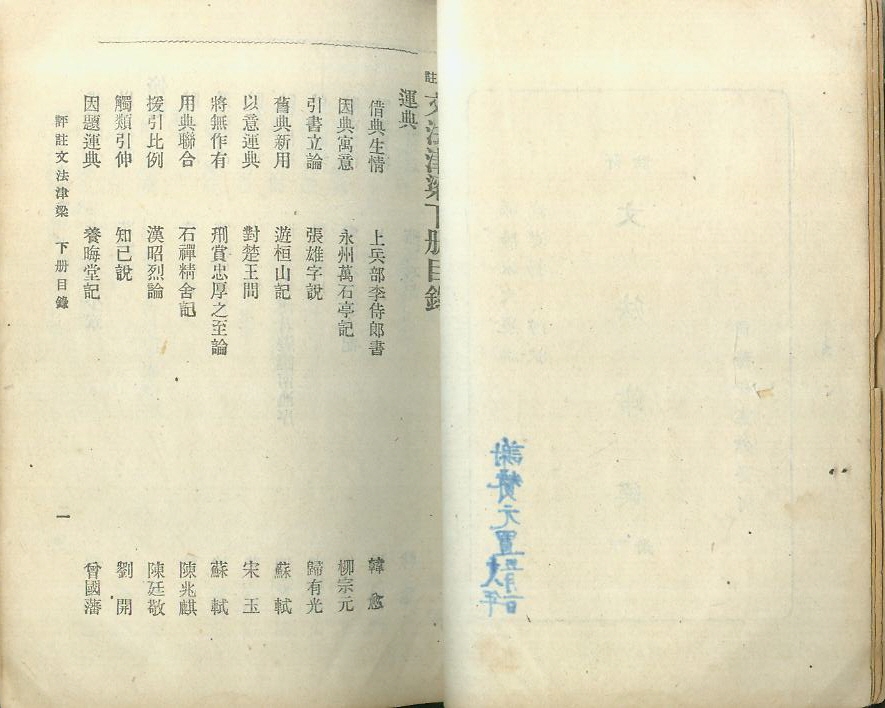 註文法津梁下册目錄
運典
借典生情 上兵部李侍郎書 韓愈
因典寓意 永州萬石亭記 柳宗元
引書立論 張雄字說 歸有光
舊典新用 遊桓山記 蘇軾
以意運典 對楚王問 宋玉
將無作有 刑賞忠厚之至論 蘇軾
用典聯合 石禪精舍記 陳兆麒
援引比例 漢昭烈論 陳廷敬
觸類引伸 知己說 劉開
因題運典 養晦堂記 曾國藩
評註文法津梁 下册目錄 一